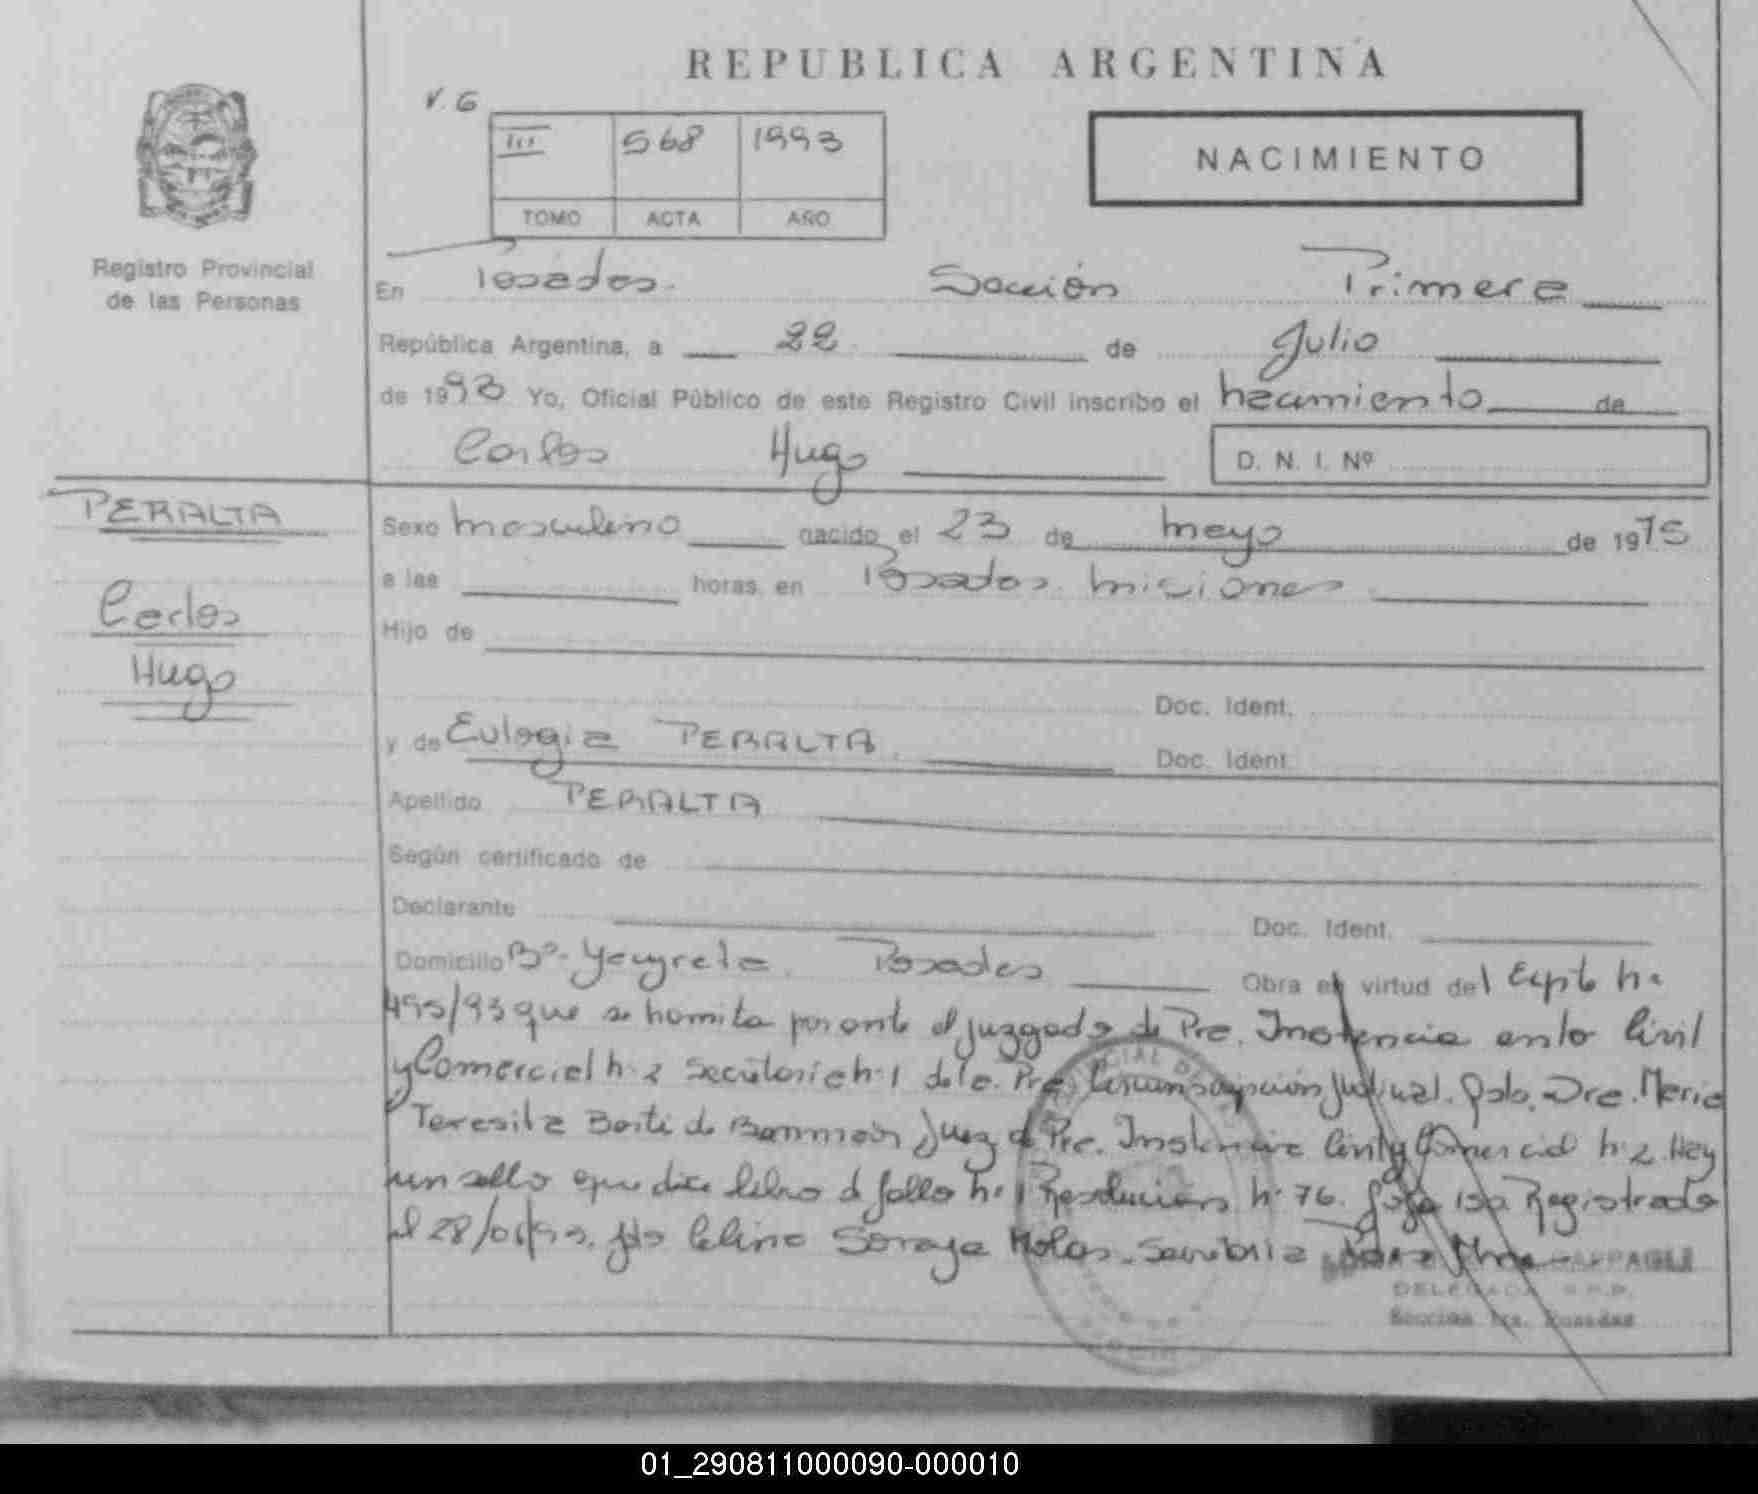 REPUBLICA ARGENTINA
V. G
III 568 1993
TOMO ACTA AÑO
NACIMIENTO
Registro Provincial
de las Personas
En Posadas. Sección Primera
República Argentina, a 22 de Julio
de 1993 Yo, Oficial Público de este Registro Civil inscribo el nacimiento de
Carlos Hugo
D. N. I. Nº
PERALTA
Carlos
Hugo
Sexo masculino nacido el 23 de mayo de 1975
a las horas en Posadas. Misiones
Hijo de
Doc. Ident.
y de Eulogia PERALTA. Doc. Ident.
Apellido PERALTA
Según certificado de
Declarante Doc. Ident.
Domicilio Bº. Yacyreta. Posadas Obra en virtud del Expte nº
495/93 que se tramita por ante el juzgado de Pra. Instancia en lo Civil
y Comercial nº 2 Secretaria nº 1 de la Pra Circunscripción Judicial. fdo. Dra. Maria
Teresita de Juez de Pra. Instancia Civil y Comercial nº 2. Hay
un sello que dice libro de fallo nº 1 Resolución nº 76. foja 150. Registrado
el 28/ fdo Soraya Secretaria
DELEGADA R.P.P.
Sección 1ra. Posadas
01_290811000090-000010